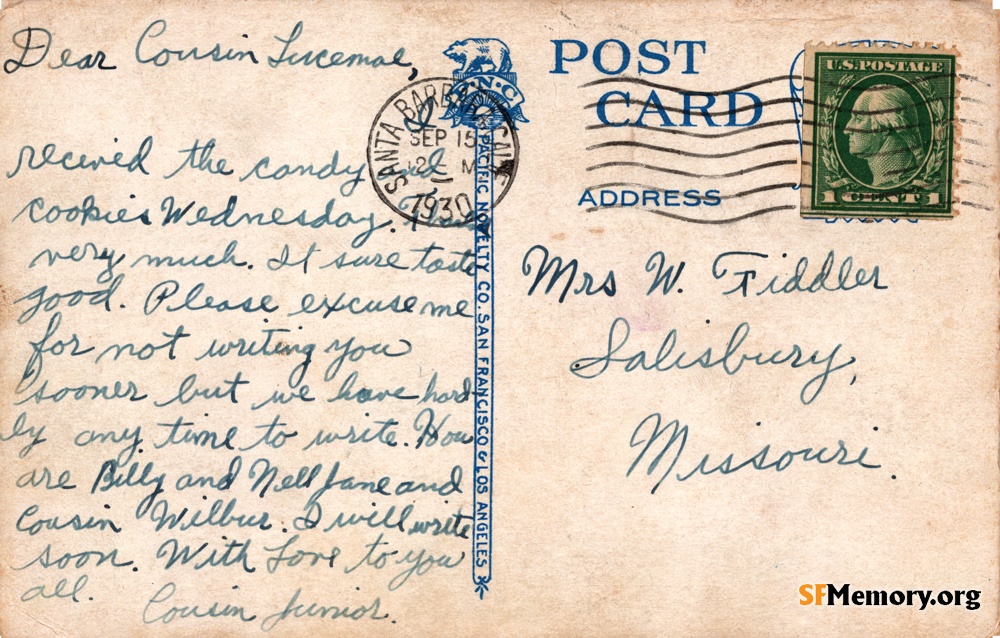 Dear Cousin Lucemae,
I
received the candy and
cookies Wednesday.
very much. It sure taste
good. Please excuse me
for not writing you
sooner but we have hard-
ly any time to write. How
are Billy and Nell Jane and
Cousin Wilbur. I will write
soon. With Love to you
all.
Cousin Junior.
P.N.C.
PACIFIC NOVELTY CO. SAN FRANCISCO & LOS ANGELES
SANTA BARBARA CALIF.
SEP 15
12 M
1930
POST
CARD
ADDRESS
U.S. POSTAGE
1 CENT 1
Mrs W. Fiddler
Salisbury,
Missouri.
SFMemory.org